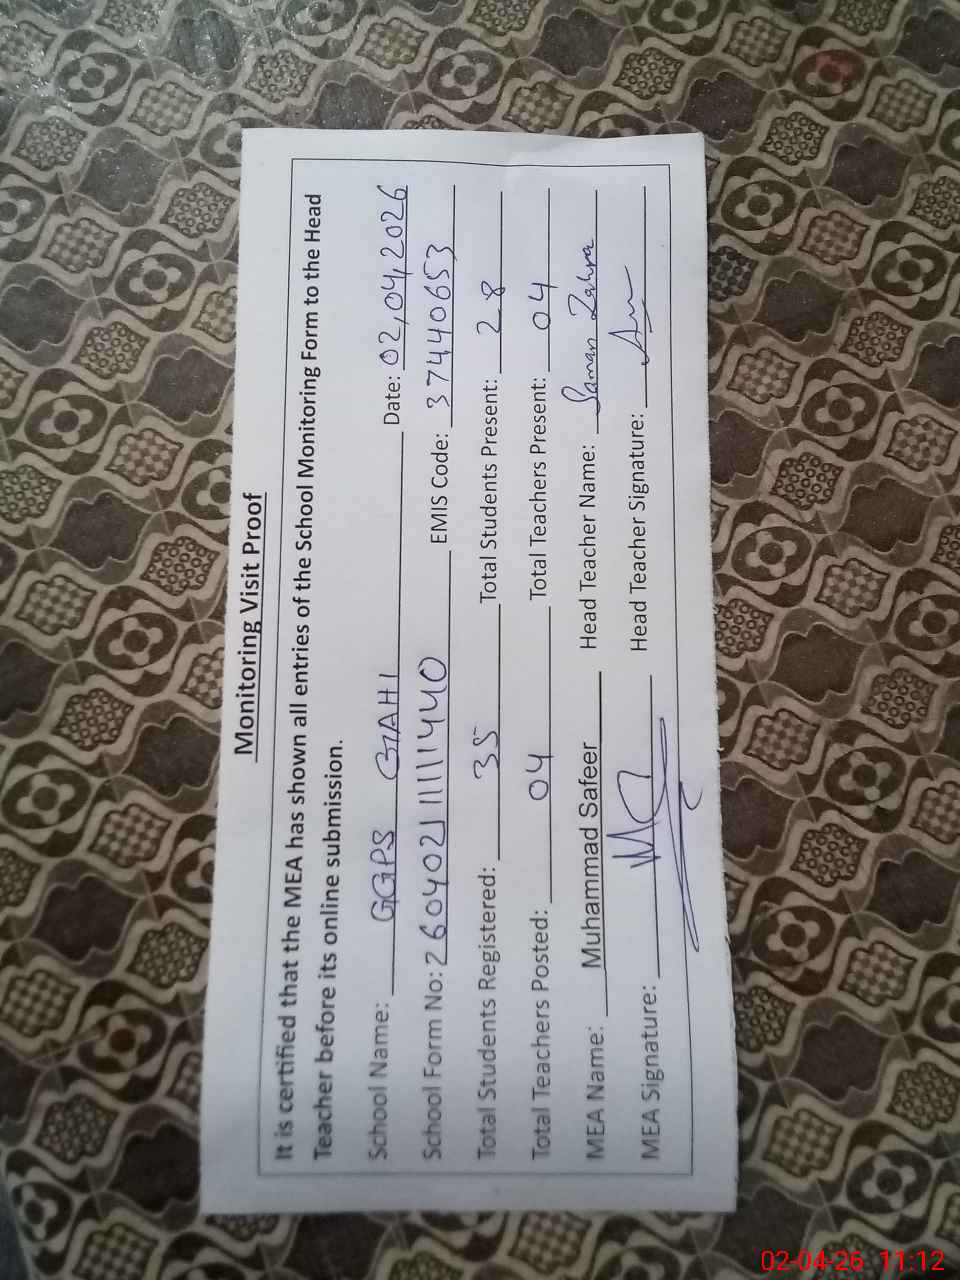 Monitoring Visit Proof
It is certified that the MEA has shown all entries of the School Monitoring Form to the Head
Teacher before its online submission.
School Name: GGPS GAHI Date: 02,04,2026
School Form No: 2604021111440 EMIS Code: 37440653
Total Students Registered: 35 Total Students Present: 28
Total Teachers Posted: 04 Total Teachers Present: 04
MEA Name: Muhammad Safeer Head Teacher Name: Saman Zahra
MEA Signature: Head Teacher Signature:
02-04-26 11:12